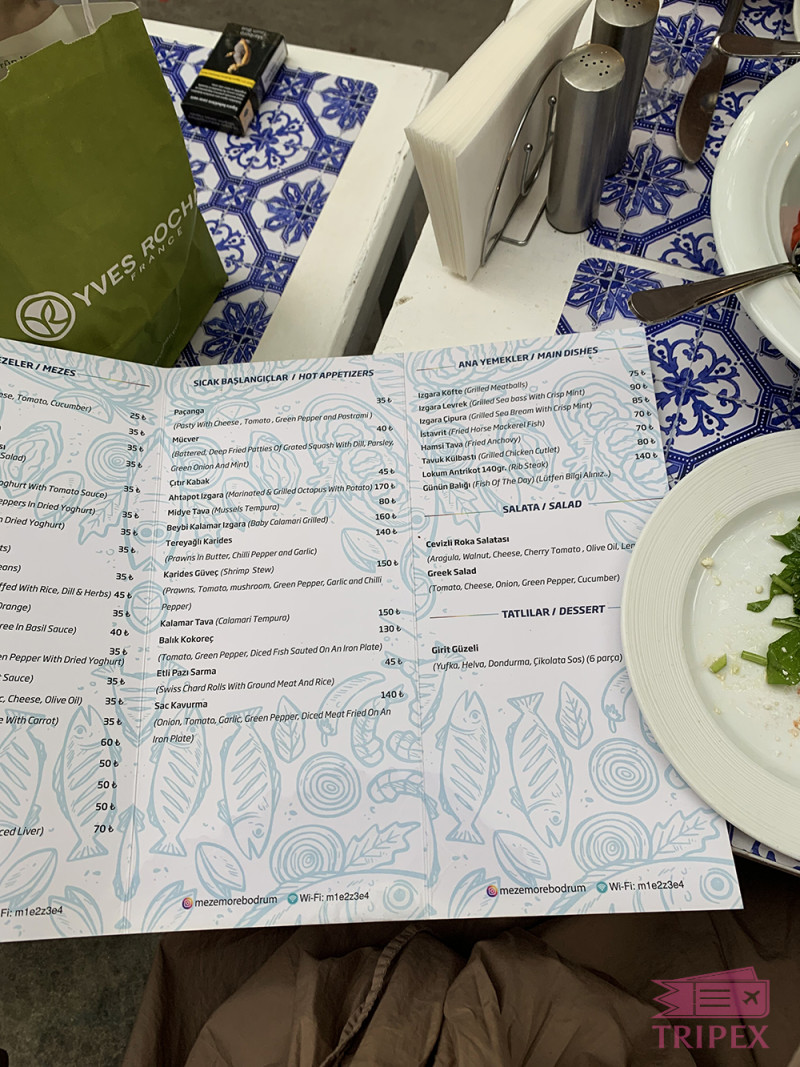 YVES ROCHE
FRANCE
EZELER / MEZES
ese, Tomato, Cucumber)
25 ₺
35 ₺
35 ₺
Salad)
35 ₺
oghurt With Tomato Sauce)
35 ₺
eppers In Dried Yoghurt)
35 ₺
n Dried Yoghurt)
35 ₺
ts)
35 ₺
eans)
35 ₺
ffed With Rice, Dill & Herbs) 45 ₺
Orange)
35 ₺
ree In Basil Sauce)
40 ₺
35 ₺
en Pepper With Dried Yoghurt)
t Sauce)
35 ₺
c, Cheese, Olive Oil)
35 ₺
e With Carrot)
35 ₺
60 ₺
50 ₺
50 ₺
50 ₺
ced Liver)
70 ₺
Fi: m1e2z3e4
SICAK BAŞLANGIÇLAR / HOT APPETIZERS
Paçanga
35 ₺
(Pasty With Cheese , Tomato , Green Pepper and Pastrami )
Mücver
40 ₺
(Battered, Deep Fried Patties Of Grated Squash With Dill, Parsley,
Green Onion And Mint)
Çıtır Kabak
45 ₺
Ahtapot Izgara (Marinated & Grilled Octopus With Potato) 170 ₺
Midye Tava (Mussels Tempura)
80 ₺
Beybi Kalamar Izgara (Baby Calamari Grilled)
160 ₺
Tereyağlı Karides
140 ₺
(Prawns in Butter, Chilli Pepper and Garlic)
Karides Güveç (Shrimp Stew)
150 ₺
(Prawns, Tomato, mushroom, Green Pepper, Garlic and Chilli
Pepper)
Kalamar Tava (Calamari Tempura)
150 ₺
Balık Kokoreç
130 ₺
(Tomato, Green Pepper, Diced Fish Sauted On An Iron Plate)
Etli Pazı Sarma
45 ₺
(Swiss Chard Rolls With Ground Meat And Rice)
Sac Kavurma
140 ₺
(Onion, Tomato, Garlic, Green Pepper, Diced Meat Fried On An
Iron Plate)
mezemorebodrum Wi-Fi: m1e2z3e4
ANA YEMEKLER / MAIN DISHES
Izgara Köfte (Grilled Meatballs)
75 ₺
Izgara Levrek (Grilled Sea bass With Crisp Mint)
90 ₺
Izgara Çipura (Grilled Sea Bream With Crisp Mint)
85 ₺
İstavrit (Fried Horse Mackerel Fish)
70 ₺
Hamsi Tava (Fried Anchovy)
70 ₺
Tavuk Külbastı (Grilled Chicken Cutlet)
80 ₺
Lokum Antrikot 140gr. (Rib Steak)
140 ₺
Günün Balığı (Fish Of The Day) (Lütfen Bilgi Alınız..)
SALATA / SALAD
Cevizli Roka Salatası
(Aragula, Walnut, Cheese, Cherry Tomato , Olive Oil, Lem
Greek Salad
(Tomato, Cheese, Onion, Green Pepper, Cucumber)
TATLILAR / DESSERT
Girit Güzeli
(Yufka, Helva, Dondurma, Çikolata Sos) (6 parça)
mezemorebodrum Wi-Fi: m1e2z3e4
TRIPEX